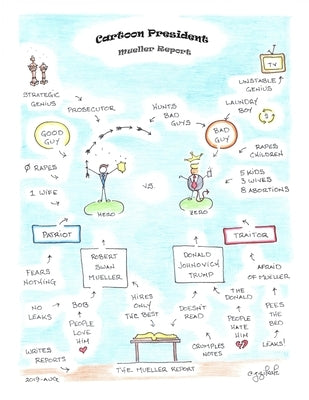 Cartoon President
Mueller Report
TV
STRATEGIC
GENIUS
PROSECUTOR
HUNTS
BAD
GUYS
LAUNDRY
BOY
UNSTABLE
GENIUS
$
GOOD
GUY
BAD
GUY
Ø RAPES
RAPES
CHILDREN
1 WIFE
5 KIDS
3 WIVES
8 ABORTIONS
HERO
VS.
ZERO
PATRIOT
TRAITOR
ROBERT
SWAN
MUELLER
DONALD
JOHNOVICH
TRUMP
FEARS
NOTHING
AFRAID
OF MUELLER
NO
LEAKS
BOB
PEOPLE
LOVE
HIM
HIRES
ONLY
THE BEST
DOESN'T
READ
THE
DONALD
PEOPLE
HATE
HIM
PEES
THE
BED
WRITES
REPORTS
CRUMPLES
NOTES
LEAKS!
THE MUELLER REPORT
2019-AUG